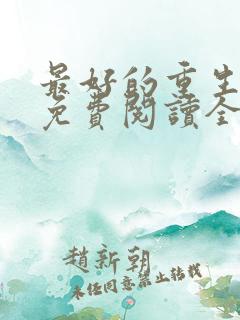 最好的重生
免費閱讀全
趙新朝
未经同意禁止转载